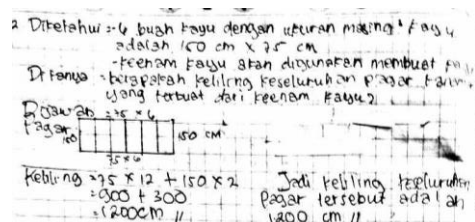 2 Diketahui :- 6 buah kayu dengan ukuran masing² kayu
adalah 150 cm x 75 cm
- Keenam kayu akan digunakan membuat
Ditanya : berapakah keliling keseluruhan pagar
yang terbuat dari keenam kayu?
Dijawab = 75 x 6
Pagar 150 150 cm
75 x 6
Keliling = 75 x 12 + 150 x 2
= 900 + 300
= 1200 cm //
Jadi keliling keseluruhan
pagar tersebut adalah
1200 cm //